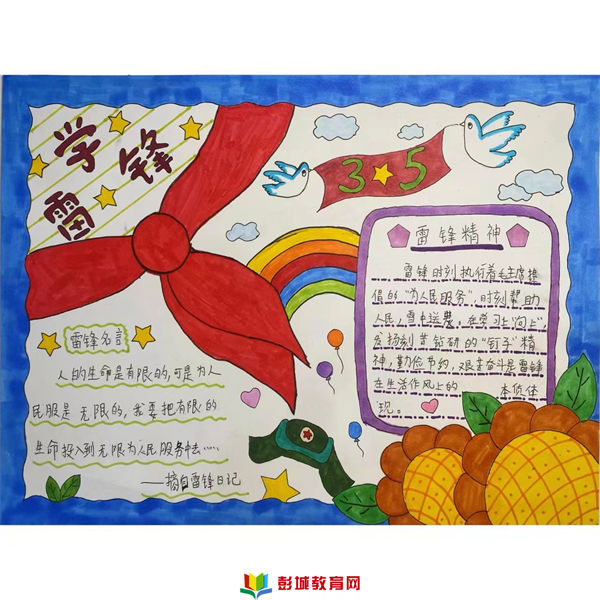 学雷锋
3 5
雷锋精神
雷锋时刻执行着毛主席提
倡的“为人民服务”,时刻帮助
人民,雪中送 。在学习上“向上”
发扬刻苦钻研的“钉子”精
神,勤俭节约,艰苦奋斗是雷锋
在生活作风上的 本质体
现。
雷锋名言
人的生命是有限的,可是为人
民服是无限的,我要把有限的
生命投入到无限为人民服务中去……
——摘自雷锋日记
彭城教育网